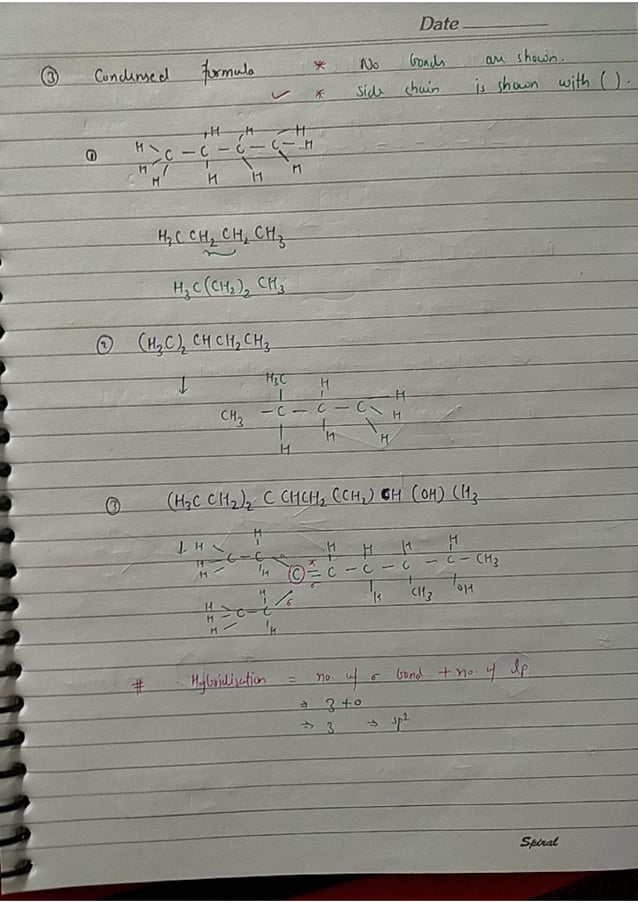 Date
③ Condensed formula * No bonds are shown.
✓ * Side chain is shown with ( ).
①
H H H H
H C - C - C - C - H
H H H H H
H₃C CH₂ CH₂ CH₃
H₃C(CH₂)₂ CH₃
② (H₃C)₂ CH CH₂ CH₃
↓
H₃C H H
CH₃ - C - C - C H
H H H
③ (H₃C CH₂)₂ C CHCH₂ (CH₃) CH (OH) CH₃
↓ H H H H H H
H C - C C = C - C - C - C - CH₃
H H H CH₃ OH
H H
H C - C σ
H H
# Hybridisation = no. of σ bond + no. of lp
⇒ 3 + 0
⇒ 3 → sp²
Spiral